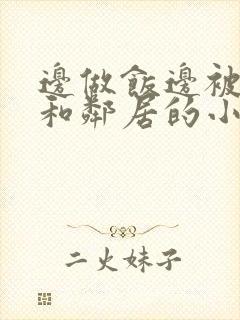 邊做飯邊被
和鄰居的小
二火妹子